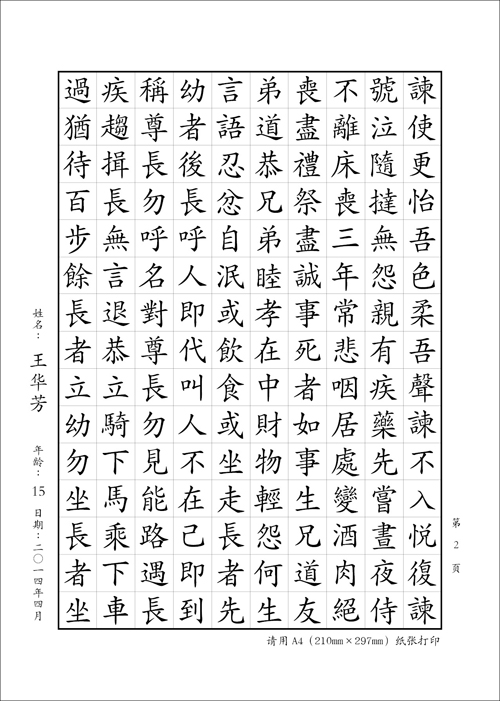 諫使更怡吾色柔吾聲諫不入悅復諫
號泣隨撻無怨親有疾藥先嘗晝夜侍
不離床喪三年常悲咽居處變酒肉絕
喪盡禮祭盡誠事死者如事生兄道友
弟道恭兄弟睦孝在中財物輕怨何生
言語忍忿自泯或飲食或坐走長者先
幼者後長呼人即代叫人不在己即到
稱尊長勿呼名對尊長勿見能路遇長
疾趨揖長無言退恭立騎下馬乘下車
過猶待百步餘長者立幼勿坐長者坐
姓名：王华芳 年龄：15 日期：二〇一四年四月
第2页
请用A4（210mm×297mm）纸张打印